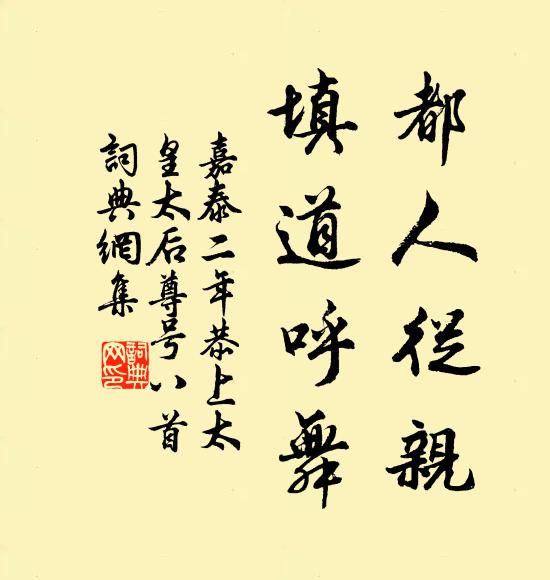 都人従親
填道呼舞
嘉泰二年恭上太
皇太后尊号八首
詞典網集
詞典
网印